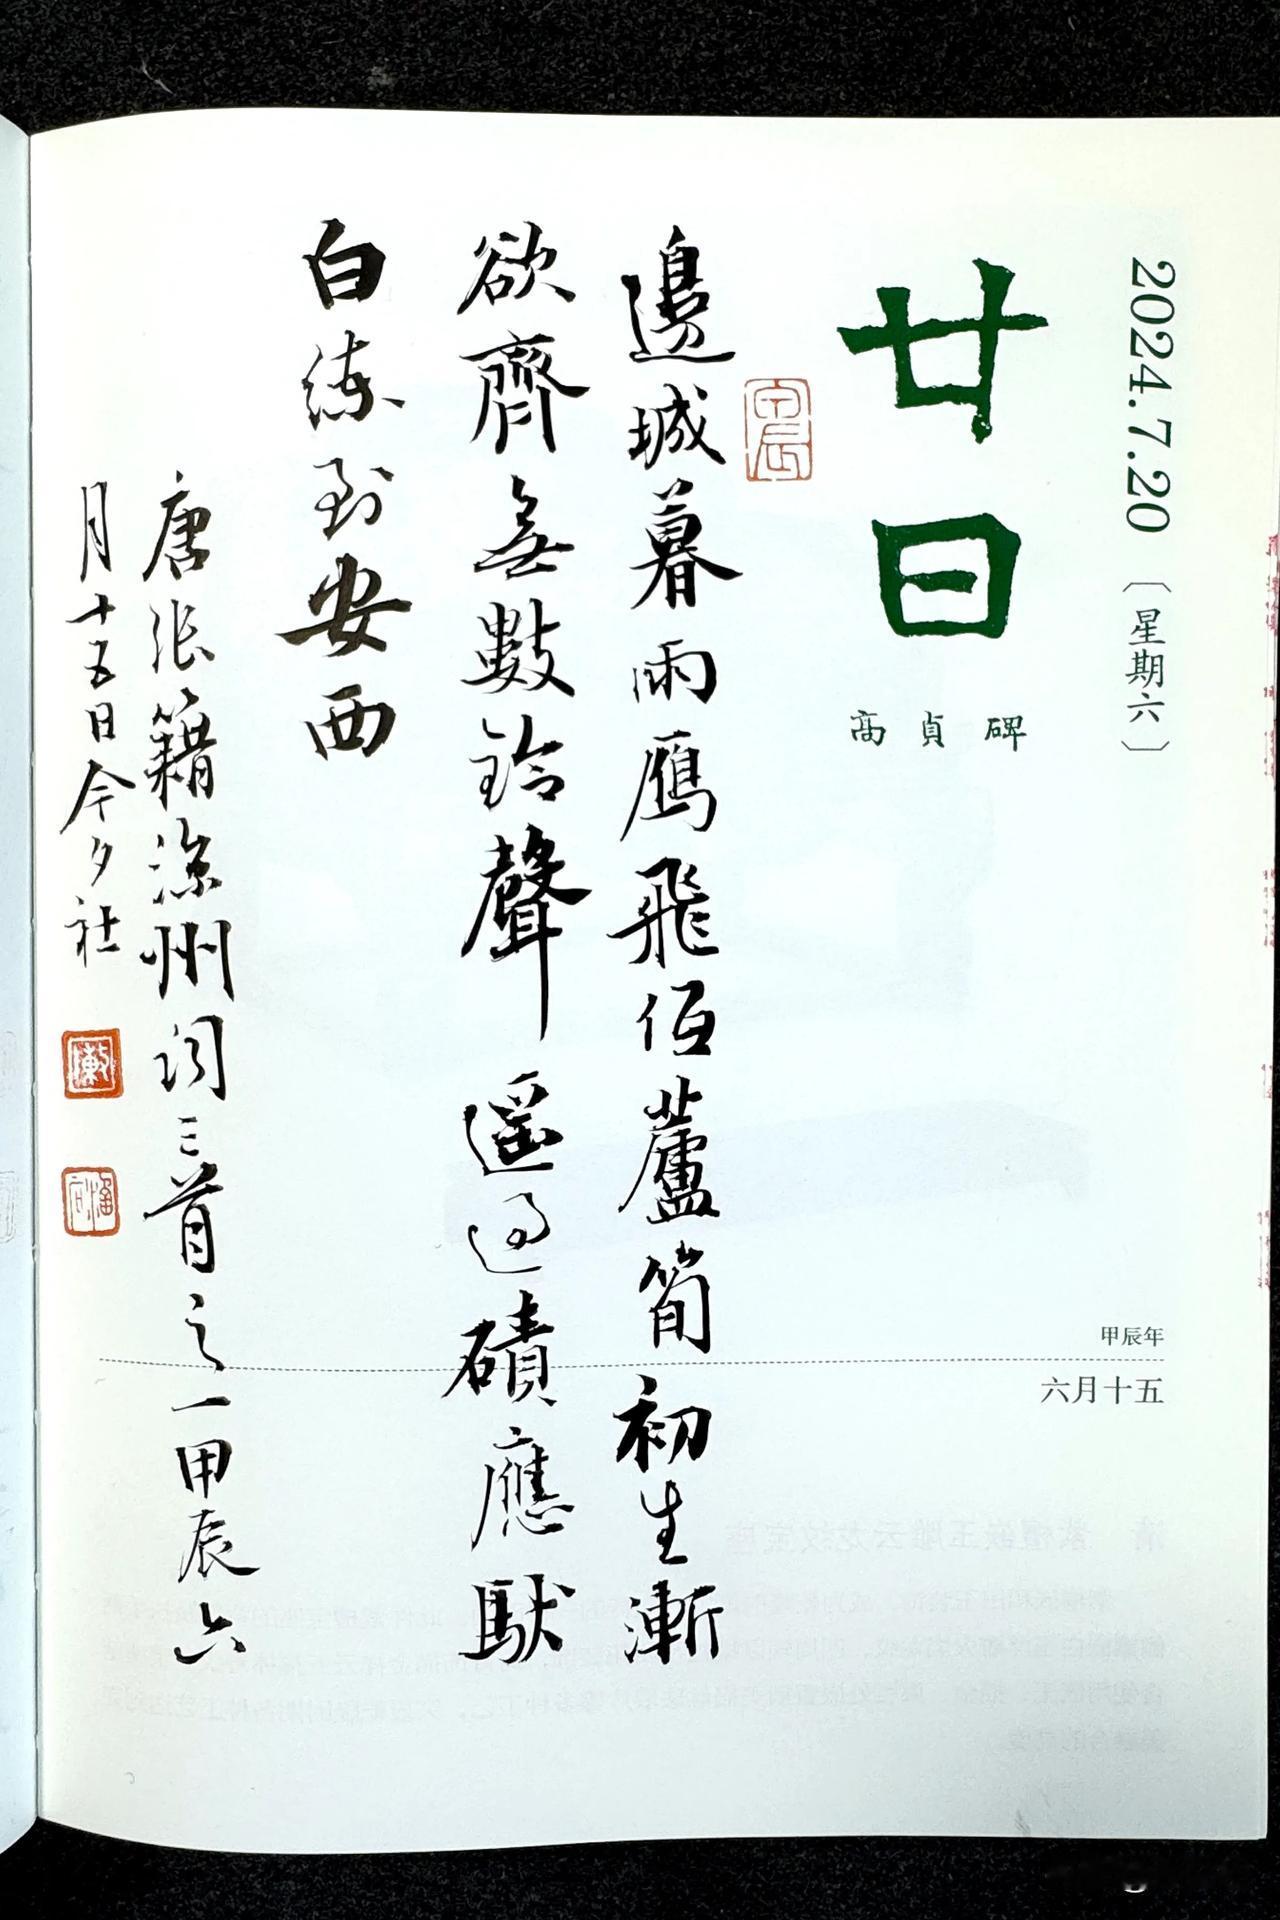 2024.7.20〔星期六〕
廿日
高貞碑
甲辰
邊城暮雨鴈飛低蘆筍初生漸
欲齊無數鈴聲遥過磧應馱
白練到安西
唐張籍涼州詞三首之一甲辰六
月十五日今夕社
甲辰年
六月十五